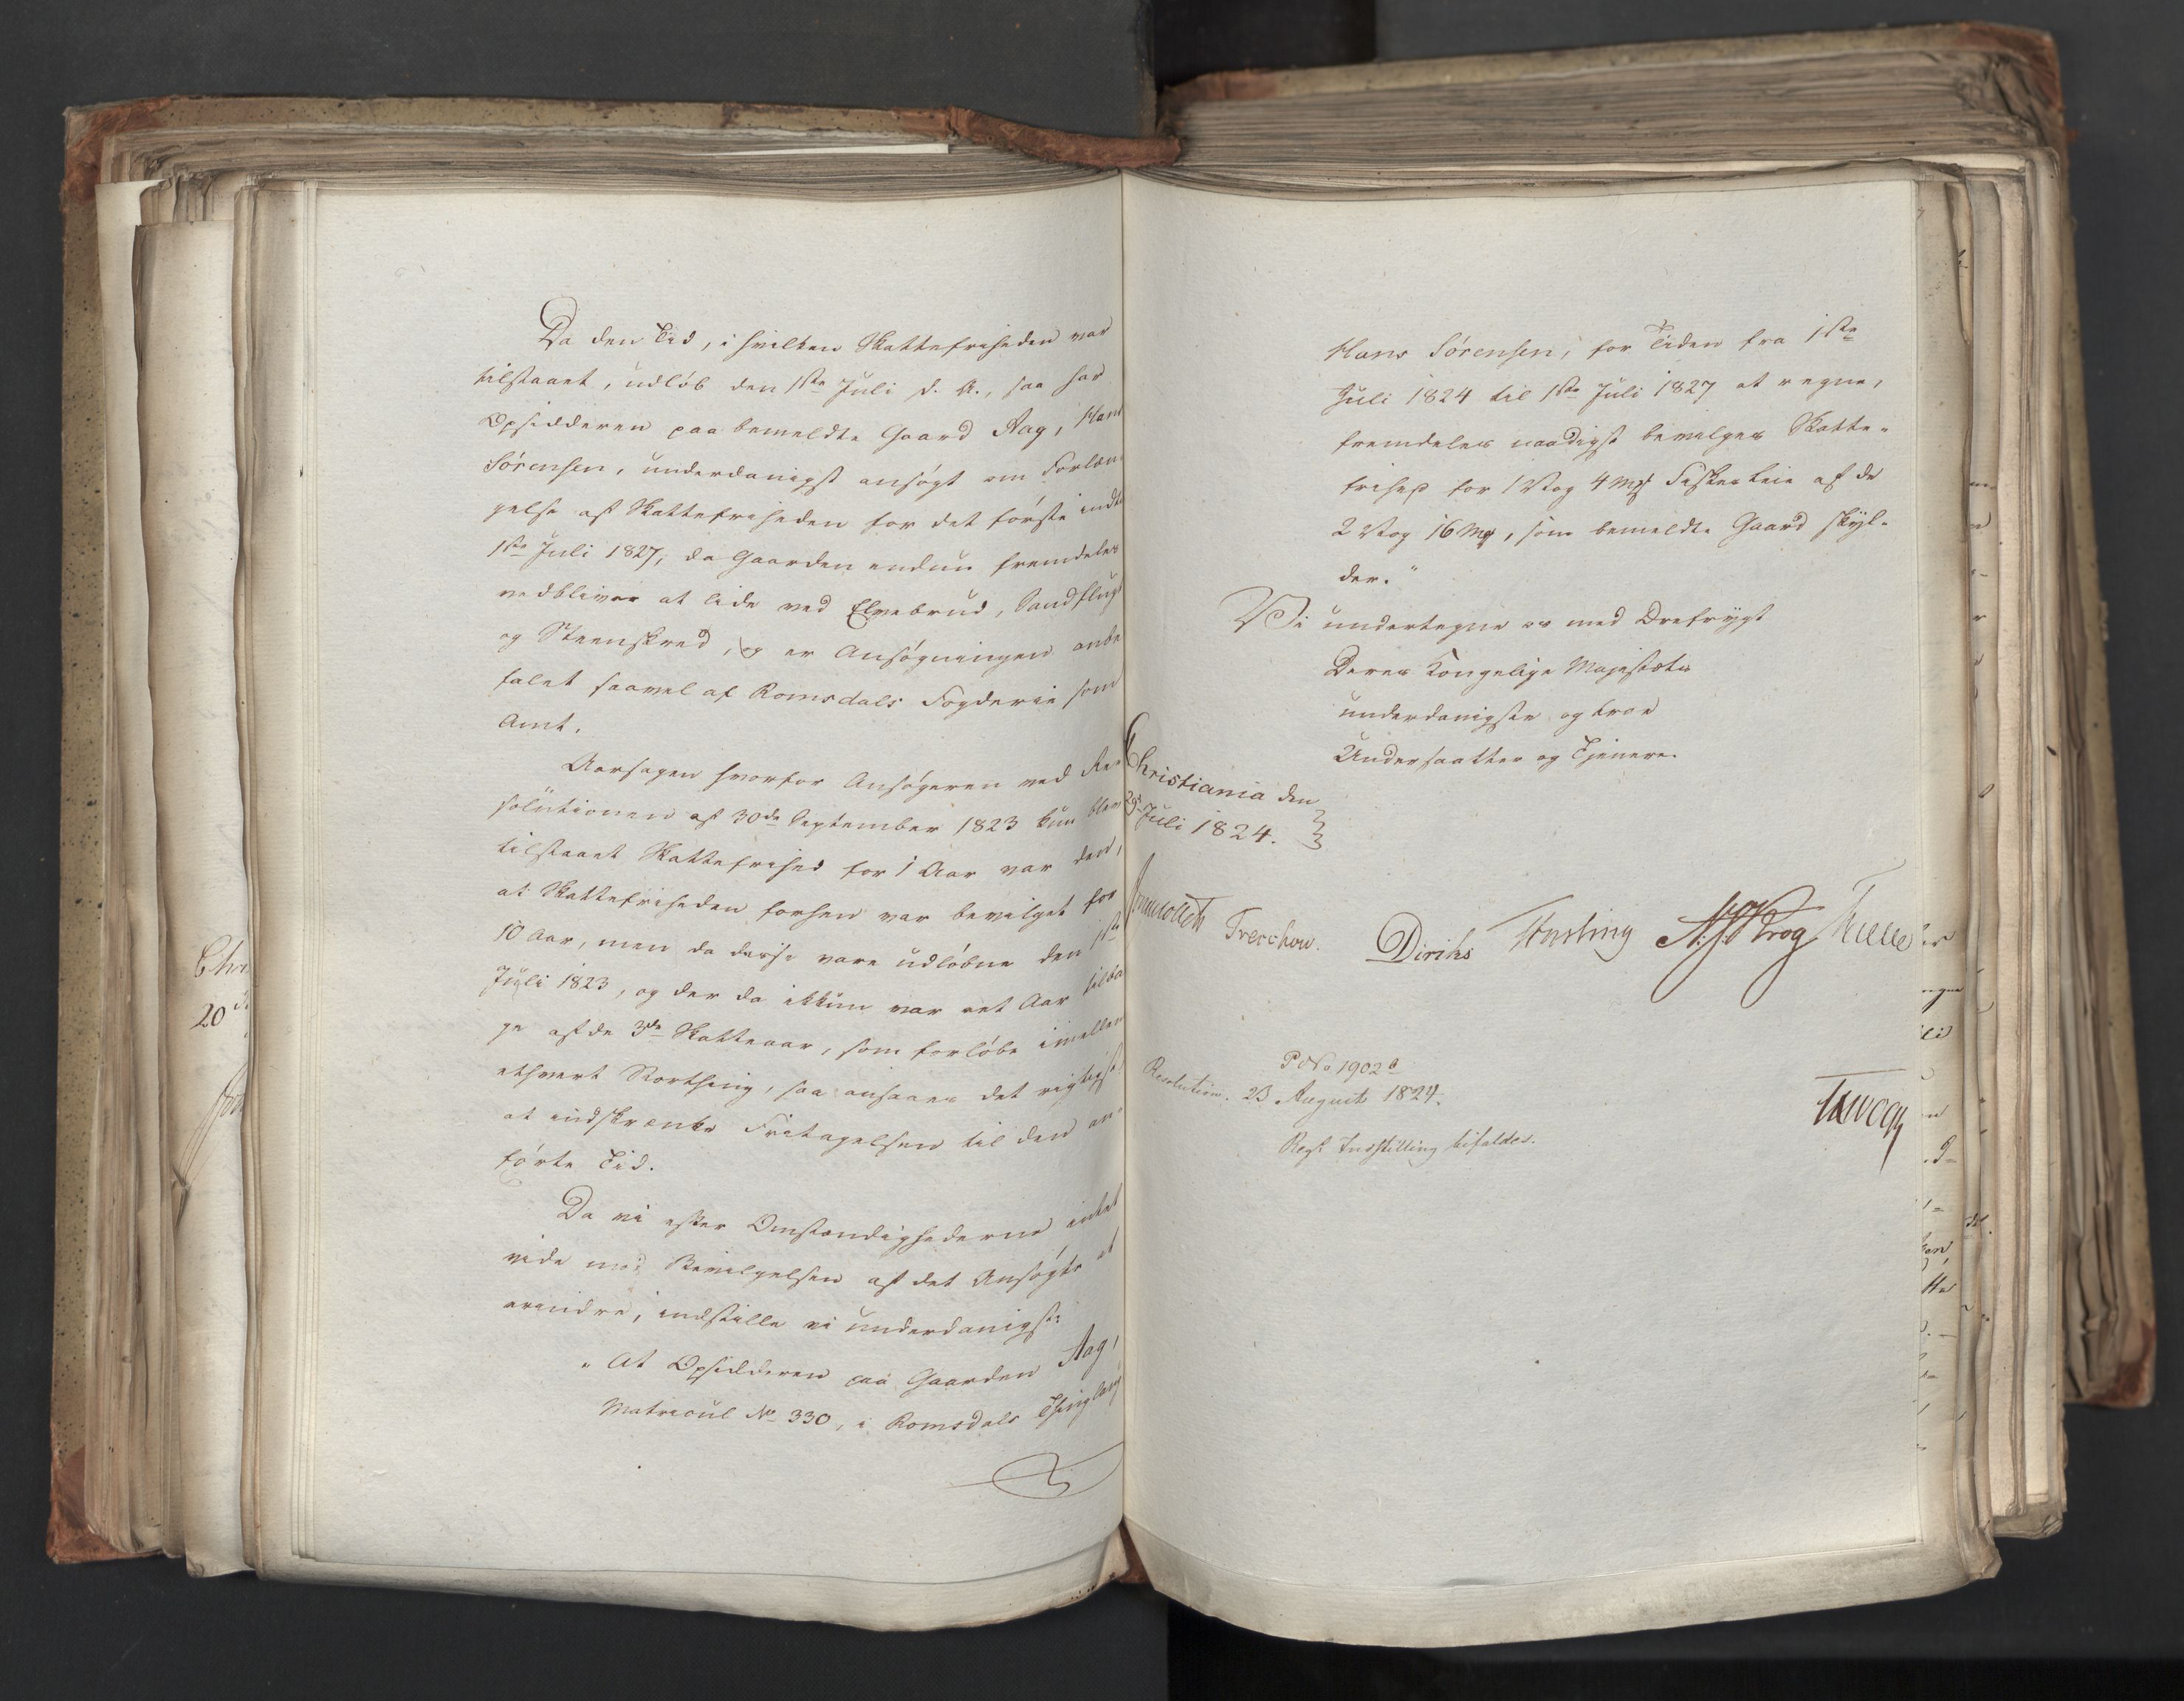 Da den Tid, i hvilken Skattefriheden var
tilstaaet, udløb den 1ste Juli d. A., saa har
Opsidderen paa bemeldte Gaard Aag, Hans
Sørensen, underdanigst ansøgt om Forlæn
gelse af Skattefriheden for det første indtil
1ste Juli 1827, da Gaarden endnu fremdeles
vedbliver at lide ved Elvebrud, Sandflugt
og Steenskred, og er Ansøgningen anbe
falet saavel af Romsdals Fogderie som
Amt.
Aarsagen hvorfor Ansøgeren ved Re
solutionen af 30de September 1823 kun blev
tilstaaet Skattefrihed for 1 Aar var den,
at Skattefriheden forhen var bevilget for
10 Aar, men da disse vare udløbne den 1ste
Juli 1823, og der da ikkun var eet Aar tilba
ge af de 3de Skatteaar, som forløbe imellem
ethvert Storthing, saa ansaaes det rigtigst
at indskrænke Fritagelsen til den an
førte Tid.
Da vi efter Omstændighederne intet
vide mod Bevilgelsen af det Ansøgte at
erindre, indstille vi underdanigst:
" At Opsidderen paa Gaarden Aag,
Matricul No 330, i Romsdals Thinglaug
Hans Sørensen, for Tiden fra 1ste
Juli 1824 til 1ste Juli 1827 at regne,
fremdeles naadigst bevilges Skatte-
frihed for 1 Vog 4 Mk Fiskesleie af de
2 Vog 16 Mk, som bemeldte Gaard skyl-
der."
Vi undertegne os med Ærefrygt
Deres Kongelige Majestæts
underdanigste og troe
Undersaatter og Tjenere.
Christiania den
29d Juli 1824.
Sommerhielm Treschow. Diriks Fasting N. J. Krog
P No 1902 a
Resolution. 23 August 1824.
Regs Indstilling bifaldes.
Chri
20d